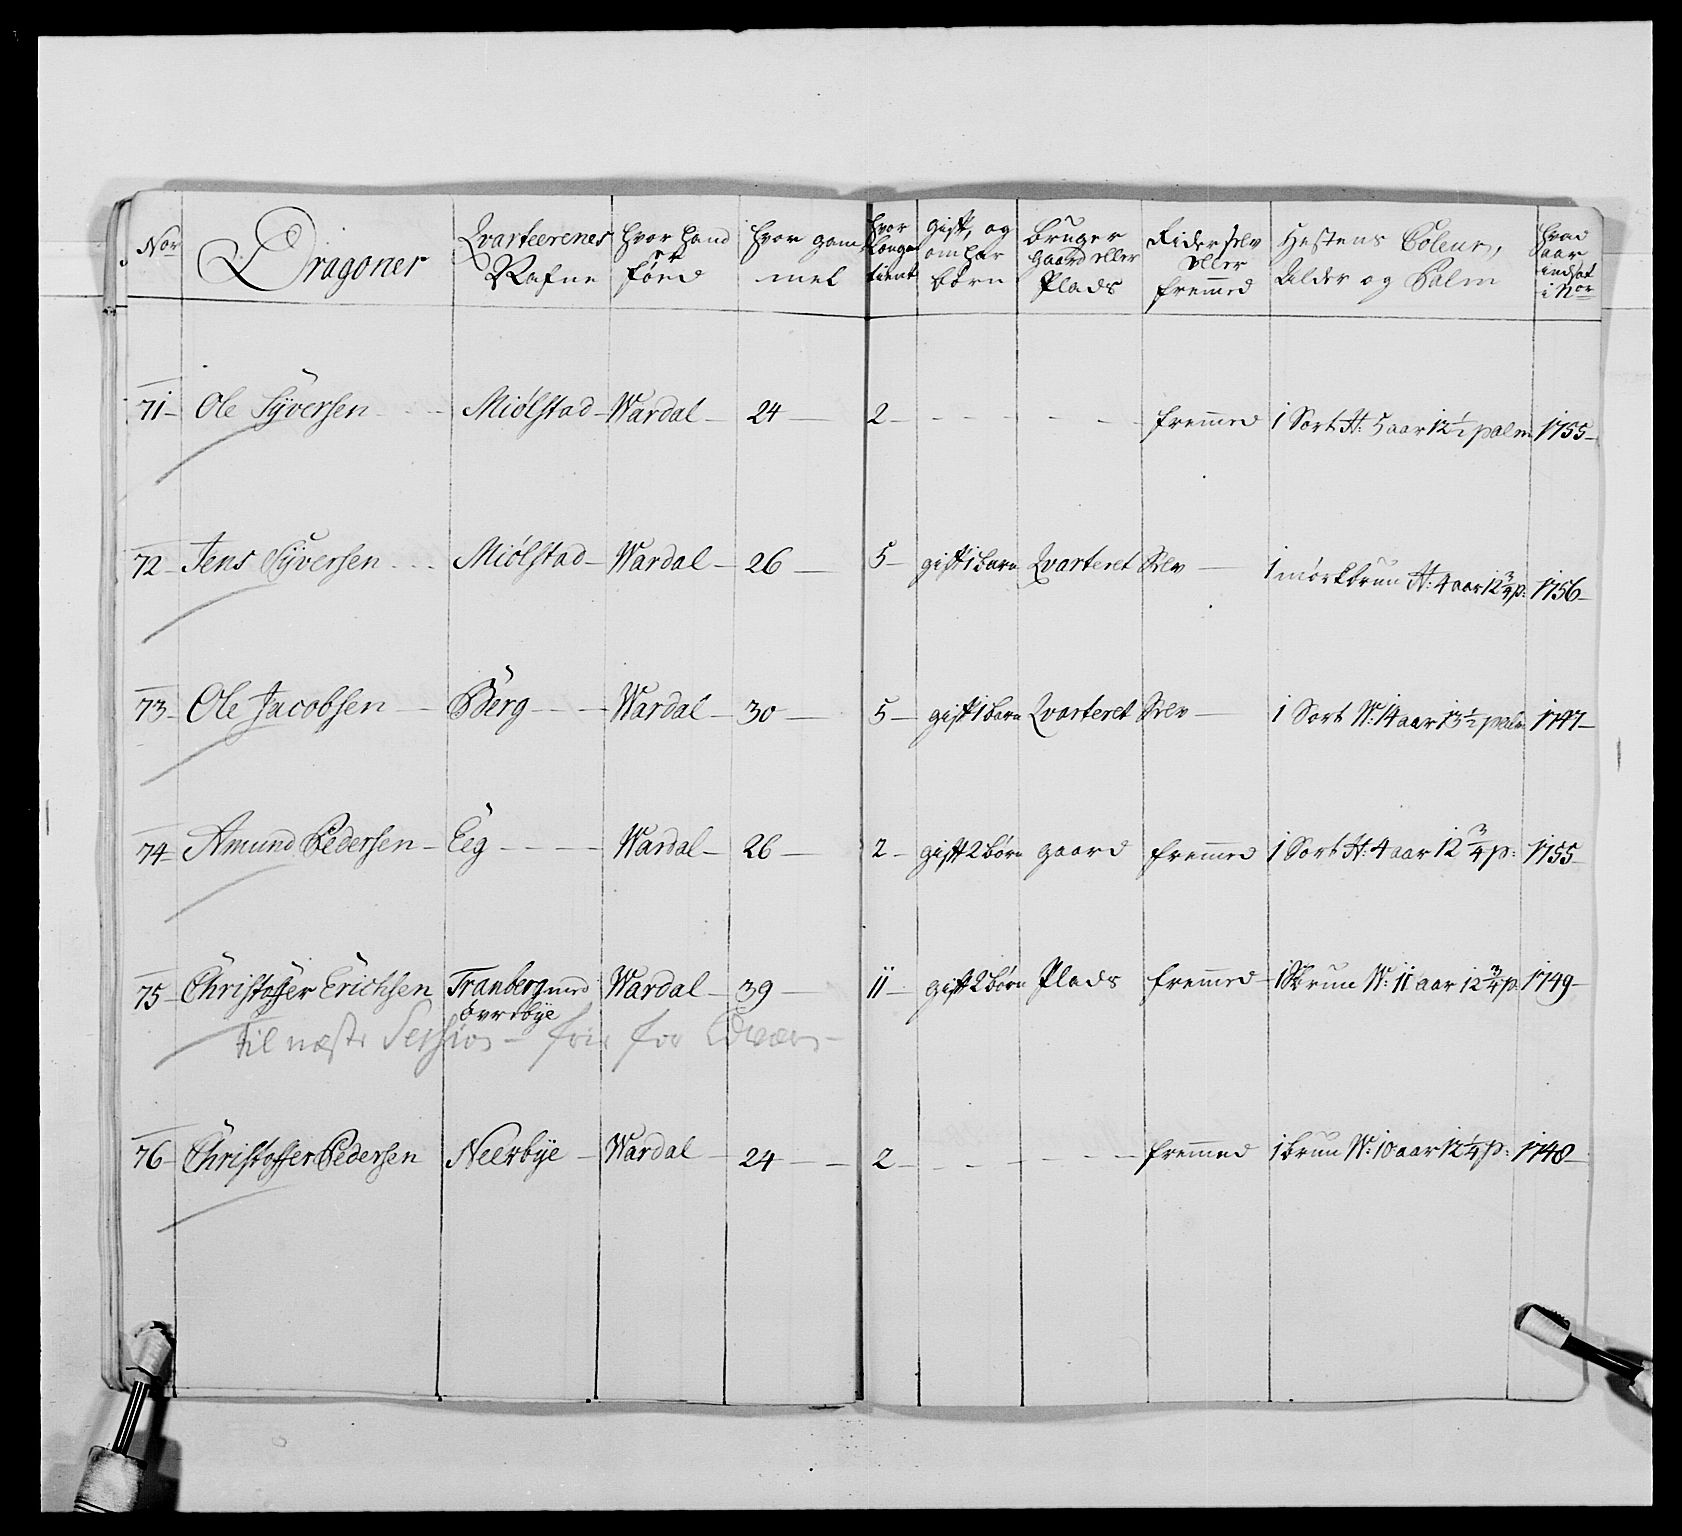 No͞r | Dragoner | Qvarteerenes Nafne | hvor hand er føed | hvor gammel | hvor længe tient | gift, og om har børn | bruger gaard eller Plads | Rider selv eller fremmed | Hestens Coleur, Alder og Palm | hvad aar indsat i No͞r
71 – Ole Syversen - - - Miølstad – Wardal – 24 — 2 – - - - - fremmed 1 Sort H: 5 aar 12½ palm 1755 –
72 – Jens Syversen - - - Miølstad – Wardal – 26 — 5 – gift 1 barn Qvarteret Selv — 1 mørkbrun H: 4 aar 12¾ p: 1756 –
73 – Ole Jacobsen — Berg - - - Wardal – 30 — 5 – gift 1 barn Qvarteret Selv — 1 Sort W: 14 aar 13½ palm 1747 –
74 Amund Pedersen – Eeg - - - Wardal – 26 — 2 – gift 2 børn gaard fremmed 1 Sort H: 4 aar 12¾ p: 1755
75 – Christoffer Erichsen Tranberg med Wardal – 39 — 11 – gift 2 børn Plads fremmed – 1 Brun W: 11 aar 12¾ p: 1749 –
øvrebye
til næste Session – frie for
76 – Christoffer Pedersen Neerbye – Wardal – 24 - - 2 – - - - - fremmed 1 brun W: 10 aar 12¼ p: 1748 –